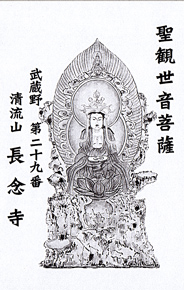 聖観世音菩薩
武蔵野 第二十九番
清流山 長念寺